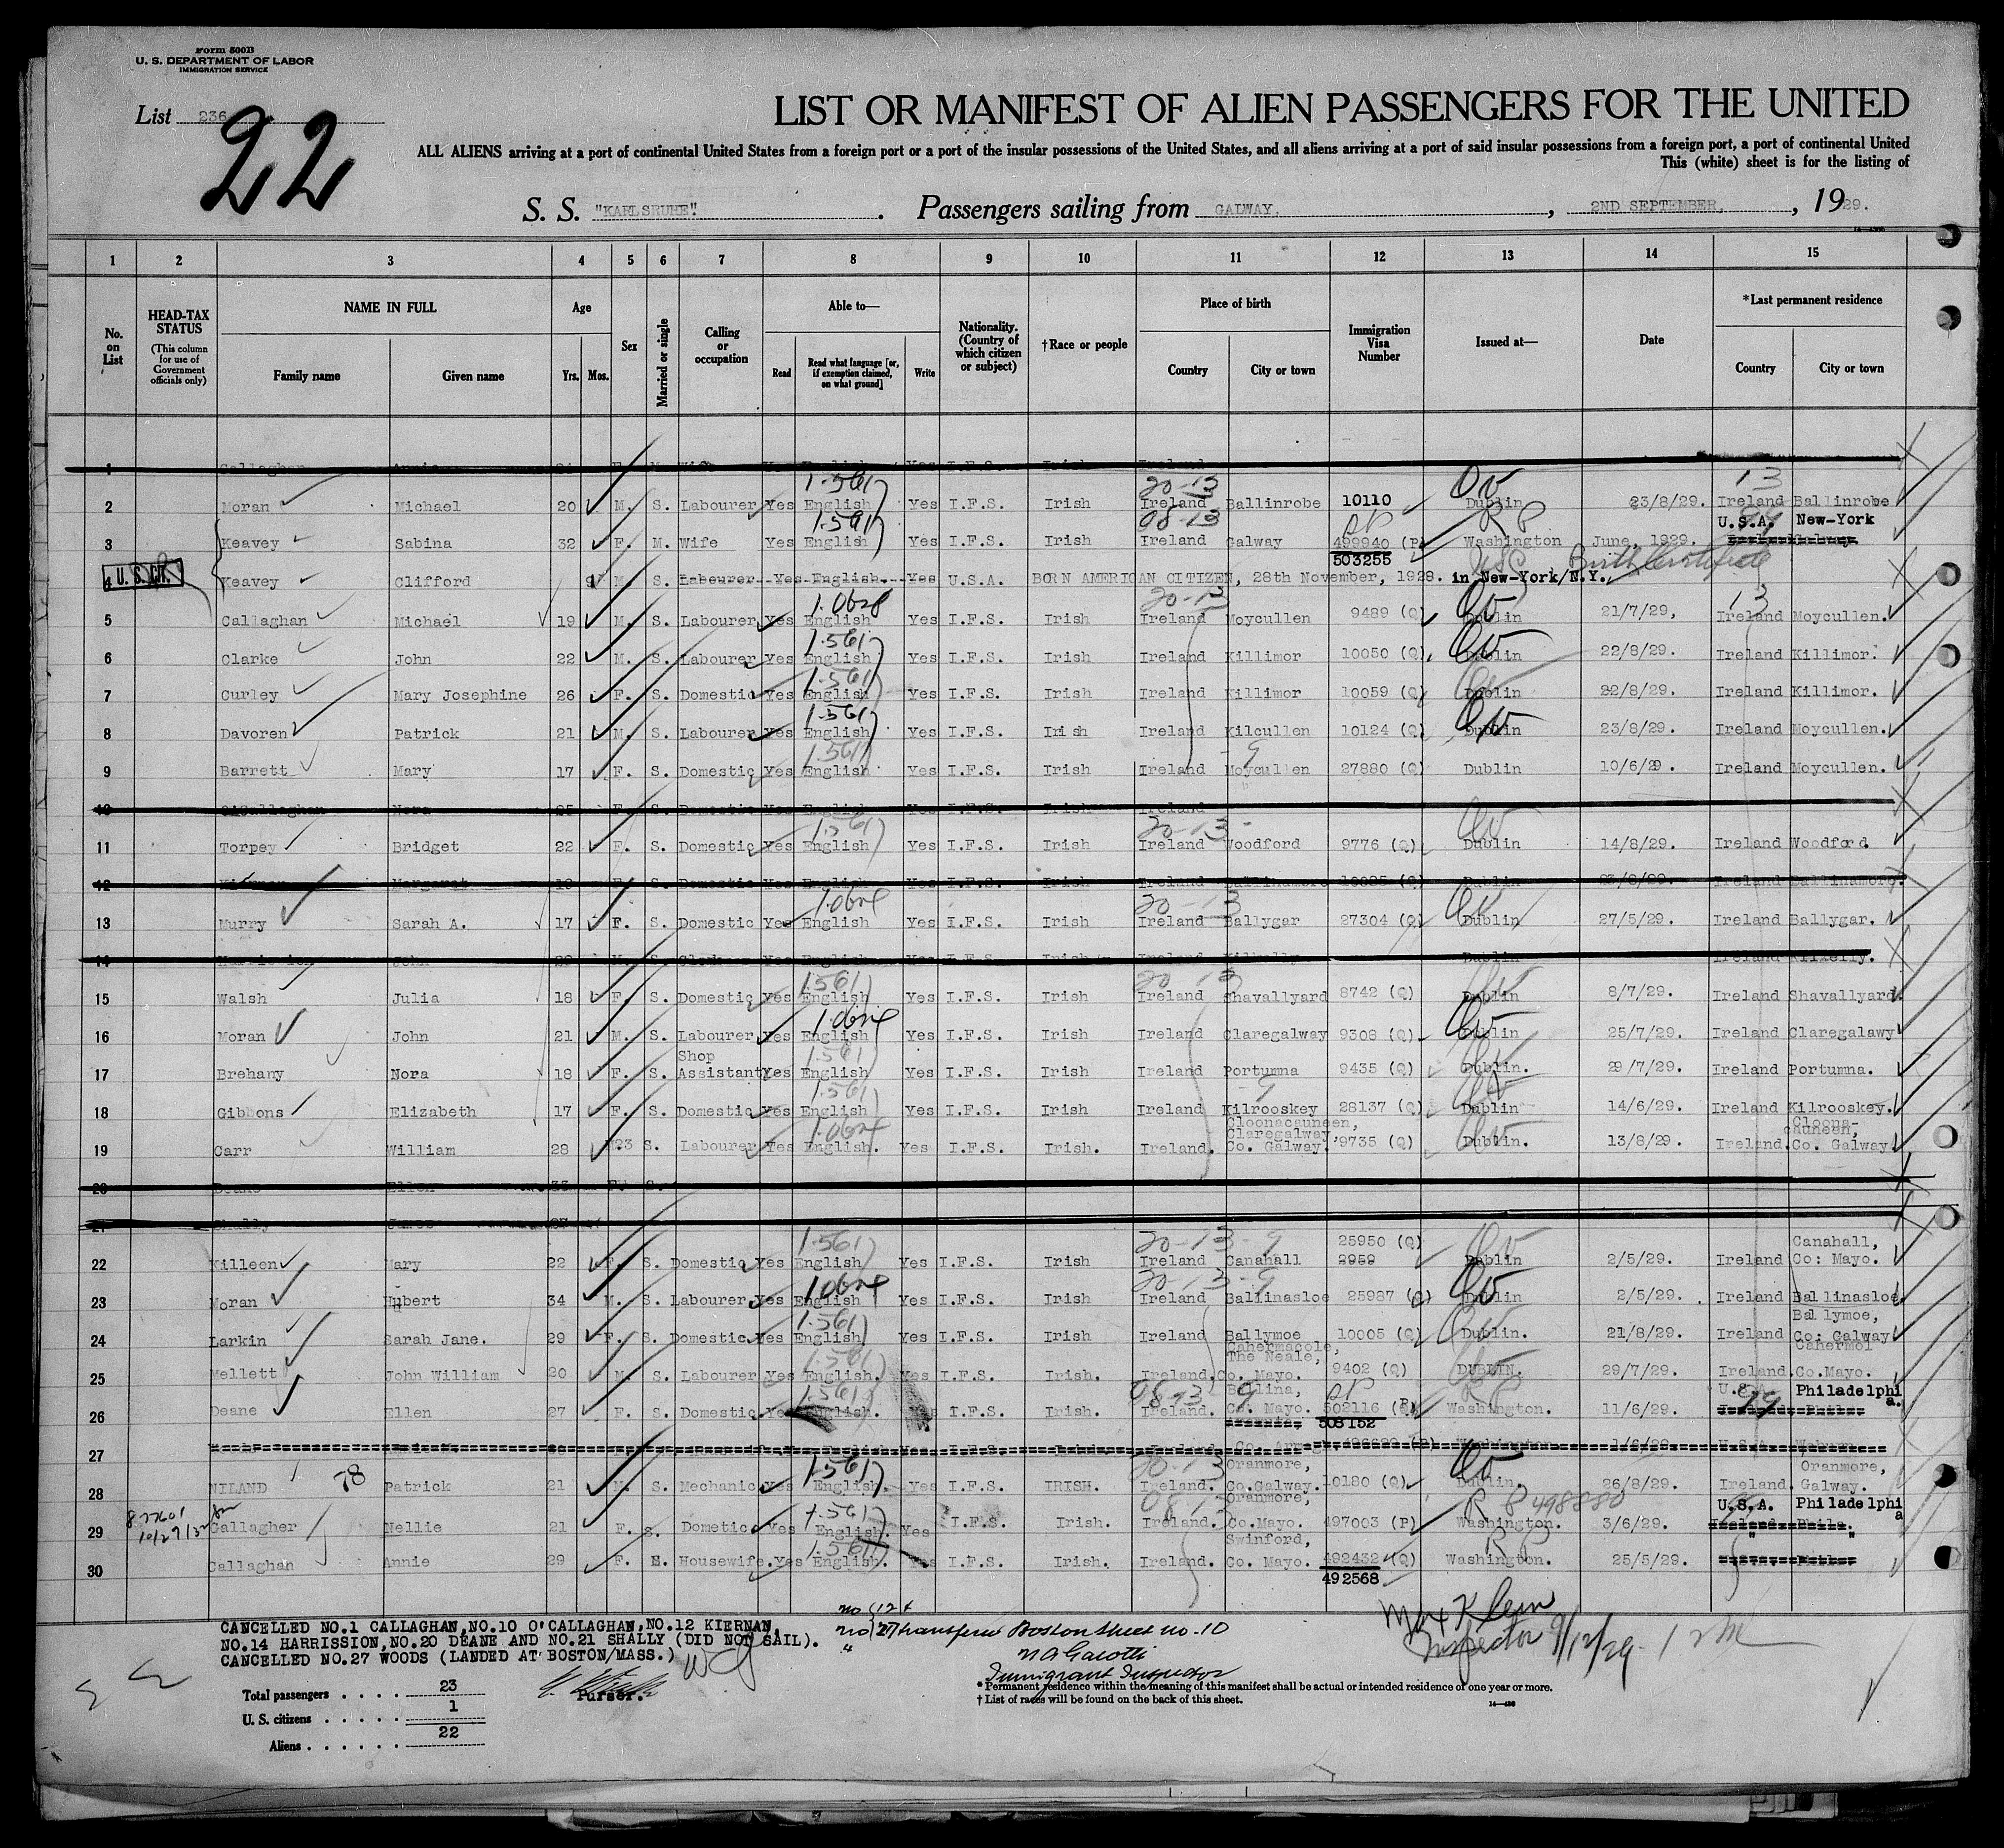 Form 500B
U. S. DEPARTMENT OF LABOR
IMMIGRATION SERVICE
List 236
22
LIST OR MANIFEST OF ALIEN PASSENGERS FOR THE UNITED
ALL ALIENS arriving at a port of continental United States from a foreign port or a port of the insular possessions of the United States, and all aliens arriving at a port of said insular possessions from a foreign port, a port of continental United
This (white) sheet is for the listing of
S. S. "KARLSRUHE". Passengers sailing from GALWAY, 2ND SEPTEMBER, 1929.
1 2 3 4 5 6 7 8 9 10 11 12 13 14 15
No. on List
HEAD-TAX STATUS (This column for use of Government officials only)
NAME IN FULL Family name Given name
Age Yrs. Mos.
Sex
Married or single
Calling or occupation
Able to— Read Read what language [or, if exemption claimed, on what ground] Write
Nationality. (Country of which citizen or subject)
†Race or people
Place of birth Country City or town
Immigration Visa Number
Issued at—
Date
*Last permanent residence Country City or town
1 Callaghan Annie Wife Yes English Yes I.F.S. Irish Ireland
1.561 20-13 13
2 Moran Michael 20 M. S. Labourer Yes English Yes I.F.S. Irish Ireland Ballinrobe 10110 Dublin 23/8/29. Ireland Ballinrobe
1.591 08-13 RP U.S.A. New-York
3 Keavey Sabina 32 F. M. Wife Yes English Yes I.F.S. Irish Ireland Galway 499940 (P) Washington June, 1929.
503255
U.S. CIT. USC Birth Certificate
4 Keavey Clifford 9 M. S. Labourer Yes English. Yes U.S.A. BORN AMERICAN CITIZEN, 28th November, 1928. in New-York/N.Y.
20-13 13
5 Callaghan Michael 19 M. S. Labourer Yes English Yes I.F.S. Irish Ireland Moycullen 9489 (Q) Dublin 21/7/29, Ireland Moycullen.
1.561
6 Clarke John 22 M. S. Labourer Yes English Yes I.F.S. Irish Ireland Killimor 10050 (Q) Dublin 22/8/29. Ireland Killimor.
1.561
7 Curley Mary Josephine 26 F. S. Domestic Yes English Yes I.F.S. Irish Ireland Killimor 10059 (Q) Dublin 22/8/29. Ireland Killimor.
1.561
8 Davoren Patrick 21 M. S. Labourer Yes English Yes I.F.S. Irish Ireland Kilcullen 10124 (Q) Dublin 23/8/29. Ireland Moycullen.
1.561 9
9 Barrett Mary 17 F. S. Domestic Yes English Yes I.F.S. Irish Ireland Moycullen 27880 (Q) Dublin 10/6/29. Ireland Moycullen.
10 O'Callaghan Nora 25 F. S. Domestic Yes English Yes I.F.S. Irish Ireland
1.561 20-13
11 Torpey Bridget 22 F. S. Domestic Yes English Yes I.F.S. Irish Ireland Woodford 9776 (Q) Dublin 14/8/29. Ireland Woodford.
12 Kiernan Margaret 19 F. S. Domestic Yes English Yes I.F.S. Irish Ireland Ballinamore (Q) Dublin 23/8/29. Ireland Ballinamore.
20-13
13 Murry Sarah A. 17 F. S. Domestic Yes English Yes I.F.S. Irish Ireland Ballygar 27304 (Q) Dublin 27/5/29. Ireland Ballygar.
14 John M. S. Clerk Yes English Yes I.F.S. Irish Ireland Dublin Ireland
1.561 20-13
15 Walsh Julia 18 F. S. Domestic Yes English Yes I.F.S. Irish Ireland Shavallyard 8742 (Q) Dublin 8/7/29. Ireland Shavallyard.
16 Moran John 21 M. S. Labourer Yes English Yes I.F.S. Irish Ireland Claregalway 9308 (Q) Dublin 25/7/29. Ireland Claregalawy
Shop 1.561
17 Brehany Nora 18 F. S. Assistant Yes English Yes I.F.S. Irish Ireland Portumna 9435 (Q) Dublin. 29/7/29. Ireland Portumna.
1.561 9
18 Gibbons Elizabeth 17 F. S. Domestic Yes English Yes I.F.S. Irish Ireland Kilrooskey 28137 (Q) Dublin 14/6/29. Ireland Kilrooskey.
Cloonacauneen, Cloona-
Claregalway, cauneen,
19 Carr William 28 S. Labourer Yes English. Yes I.F.S. Irish. Ireland. Co. Galway. 9735 (Q) Dublin. 13/8/29. Ireland. Co. Galway
20 Deane Ellen 33 F. S.
21 Shally James 27
1.561 20-13-9 25950 (Q) Canahall,
22 Killeen Mary 22 F. S. Domestic Yes English Yes I.F.S. Irish Ireland Canahall 2959 Dublin 2/5/29. Ireland Co: Mayo.
20-13-9
23 Moran Hubert 34 M. S. Labourer Yes English Yes I.F.S. Irish Ireland Ballinasloe 25987 (Q) Dublin 2/5/29. Ireland Ballinasloe.
1.561 Ballymoe,
24 Larkin Sarah Jane. 29 F. S. Domestic Yes English Yes I.F.S. Irish Ireland Ballymoe 10005 (Q) Dublin. 21/8/29. Ireland Co: Galway
1.561 Cahermacole, The Neale, Cahermol
25 Mellett John William 20 M. S. Labourer Yes English. Yes I.F.S. Irish. Ireland. Co. Mayo. 9402 (Q) DUBLIN. 29/7/29. Ireland. Co.Mayo.
1.561 08-13 9 Ballina, RP U.S.A. 99 Philadelphia.
26 Deane Ellen 27 F. S. Domestic Yes English. I.F.S. Irish. Ireland. Co. Mayo. 502116 (P) Washington. 11/6/29.
508152
27 Co. Armagh 496620 (P) Washington 1/6/29. U.S.A.
1.561 20-13 Oranmore, Oranmore,
28 NILAND 78 Patrick 21 M. S. Mechanic Yes English. Yes I.F.S. IRISH. Ireland. Co.Galway. 10180 (Q) Dublin. 26/8/29. Ireland. Galway.
1.561 08-13 Oranmore, R P 498880 U.S.A. Philadelphia
29 877601 Gallagher Nellie 21 F. S. Dometic Yes English. Yes I.F.S. Irish. Ireland. Co.Mayo. 497003 (P) Washington. 3/6/29. Ireland. Phila.
1.561 Swinford, R P " "
30 Callaghan Annie 29 F. M. Housewife. Yes English. Yes I.F.S. Irish. Ireland. Co. Mayo. 492432 (Q) Washington. 25/5/29.
492568
CANCELLED NO.1 CALLAGHAN, NO.10 O'CALLAGHAN, NO.12 KIERNAN,
NO.14 HARRISSION, NO.20 DEANE AND NO.21 SHALLY (DID NOT SAIL).
CANCELLED NO.27 WOODS (LANDED AT BOSTON/MASS.)
no 27 transfered Boston sheet no. 10
Immigrant Inspector
Max Klein
Inspector 9/12/29
Purser.
Total passengers . . . . 23
U. S. citizens . . . . . 1
Aliens . . . . . . 22
* Permanent residence within the meaning of this manifest shall be actual or intended residence of one year or more.
† List of races will be found on the back of this sheet.